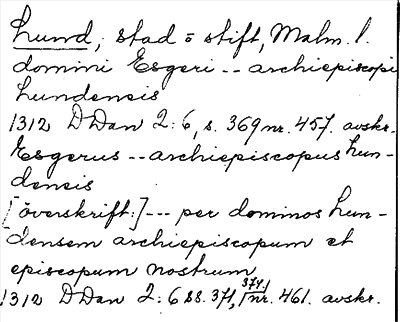 Lund, stad o stift, Malm. l.
domini Esgeri -- archiepiscopi
Lundensis
1312 DDan 2:6, s. 369 nr. 457. avskr.
Esgerus -- archiepiscopus Lun-
densis
[överskrift:] --- per dominos Lun-
densem archiepiscopum et
episcopum nostrum
1312 DDan 2:6 ss. 371, 374, nr. 461. avskr.